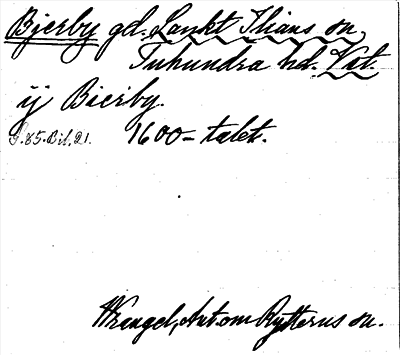 Bjerby gd. Sankt Ilians sn,
Tuhundra hd. Vst.
ij Bierby.
S. 85. Bil. 21. 1600-talet.
Wrangel, Ant. om Rytterns sn.